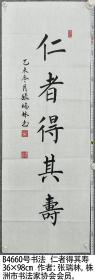 仁者得其壽
乙未冬月張瑞林書
B4660号书法 仁者得其寿
36×98cm 作者: 张瑞林, 株
洲市书法家协会会员。